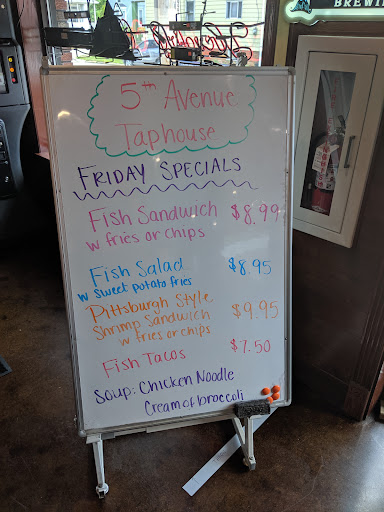 BREWING
5th Avenue
Taphouse
FRIDAY SPECIALS
Fish Sandwich $8.99
w fries or chips
Fish Salad $8.95
w sweet potato fries
Pittsburgh Style
Shrimp Sandwich $9.95
w fries or chips
Fish Tacos $7.50
Soup: Chicken Noodle
Cream of broccoli